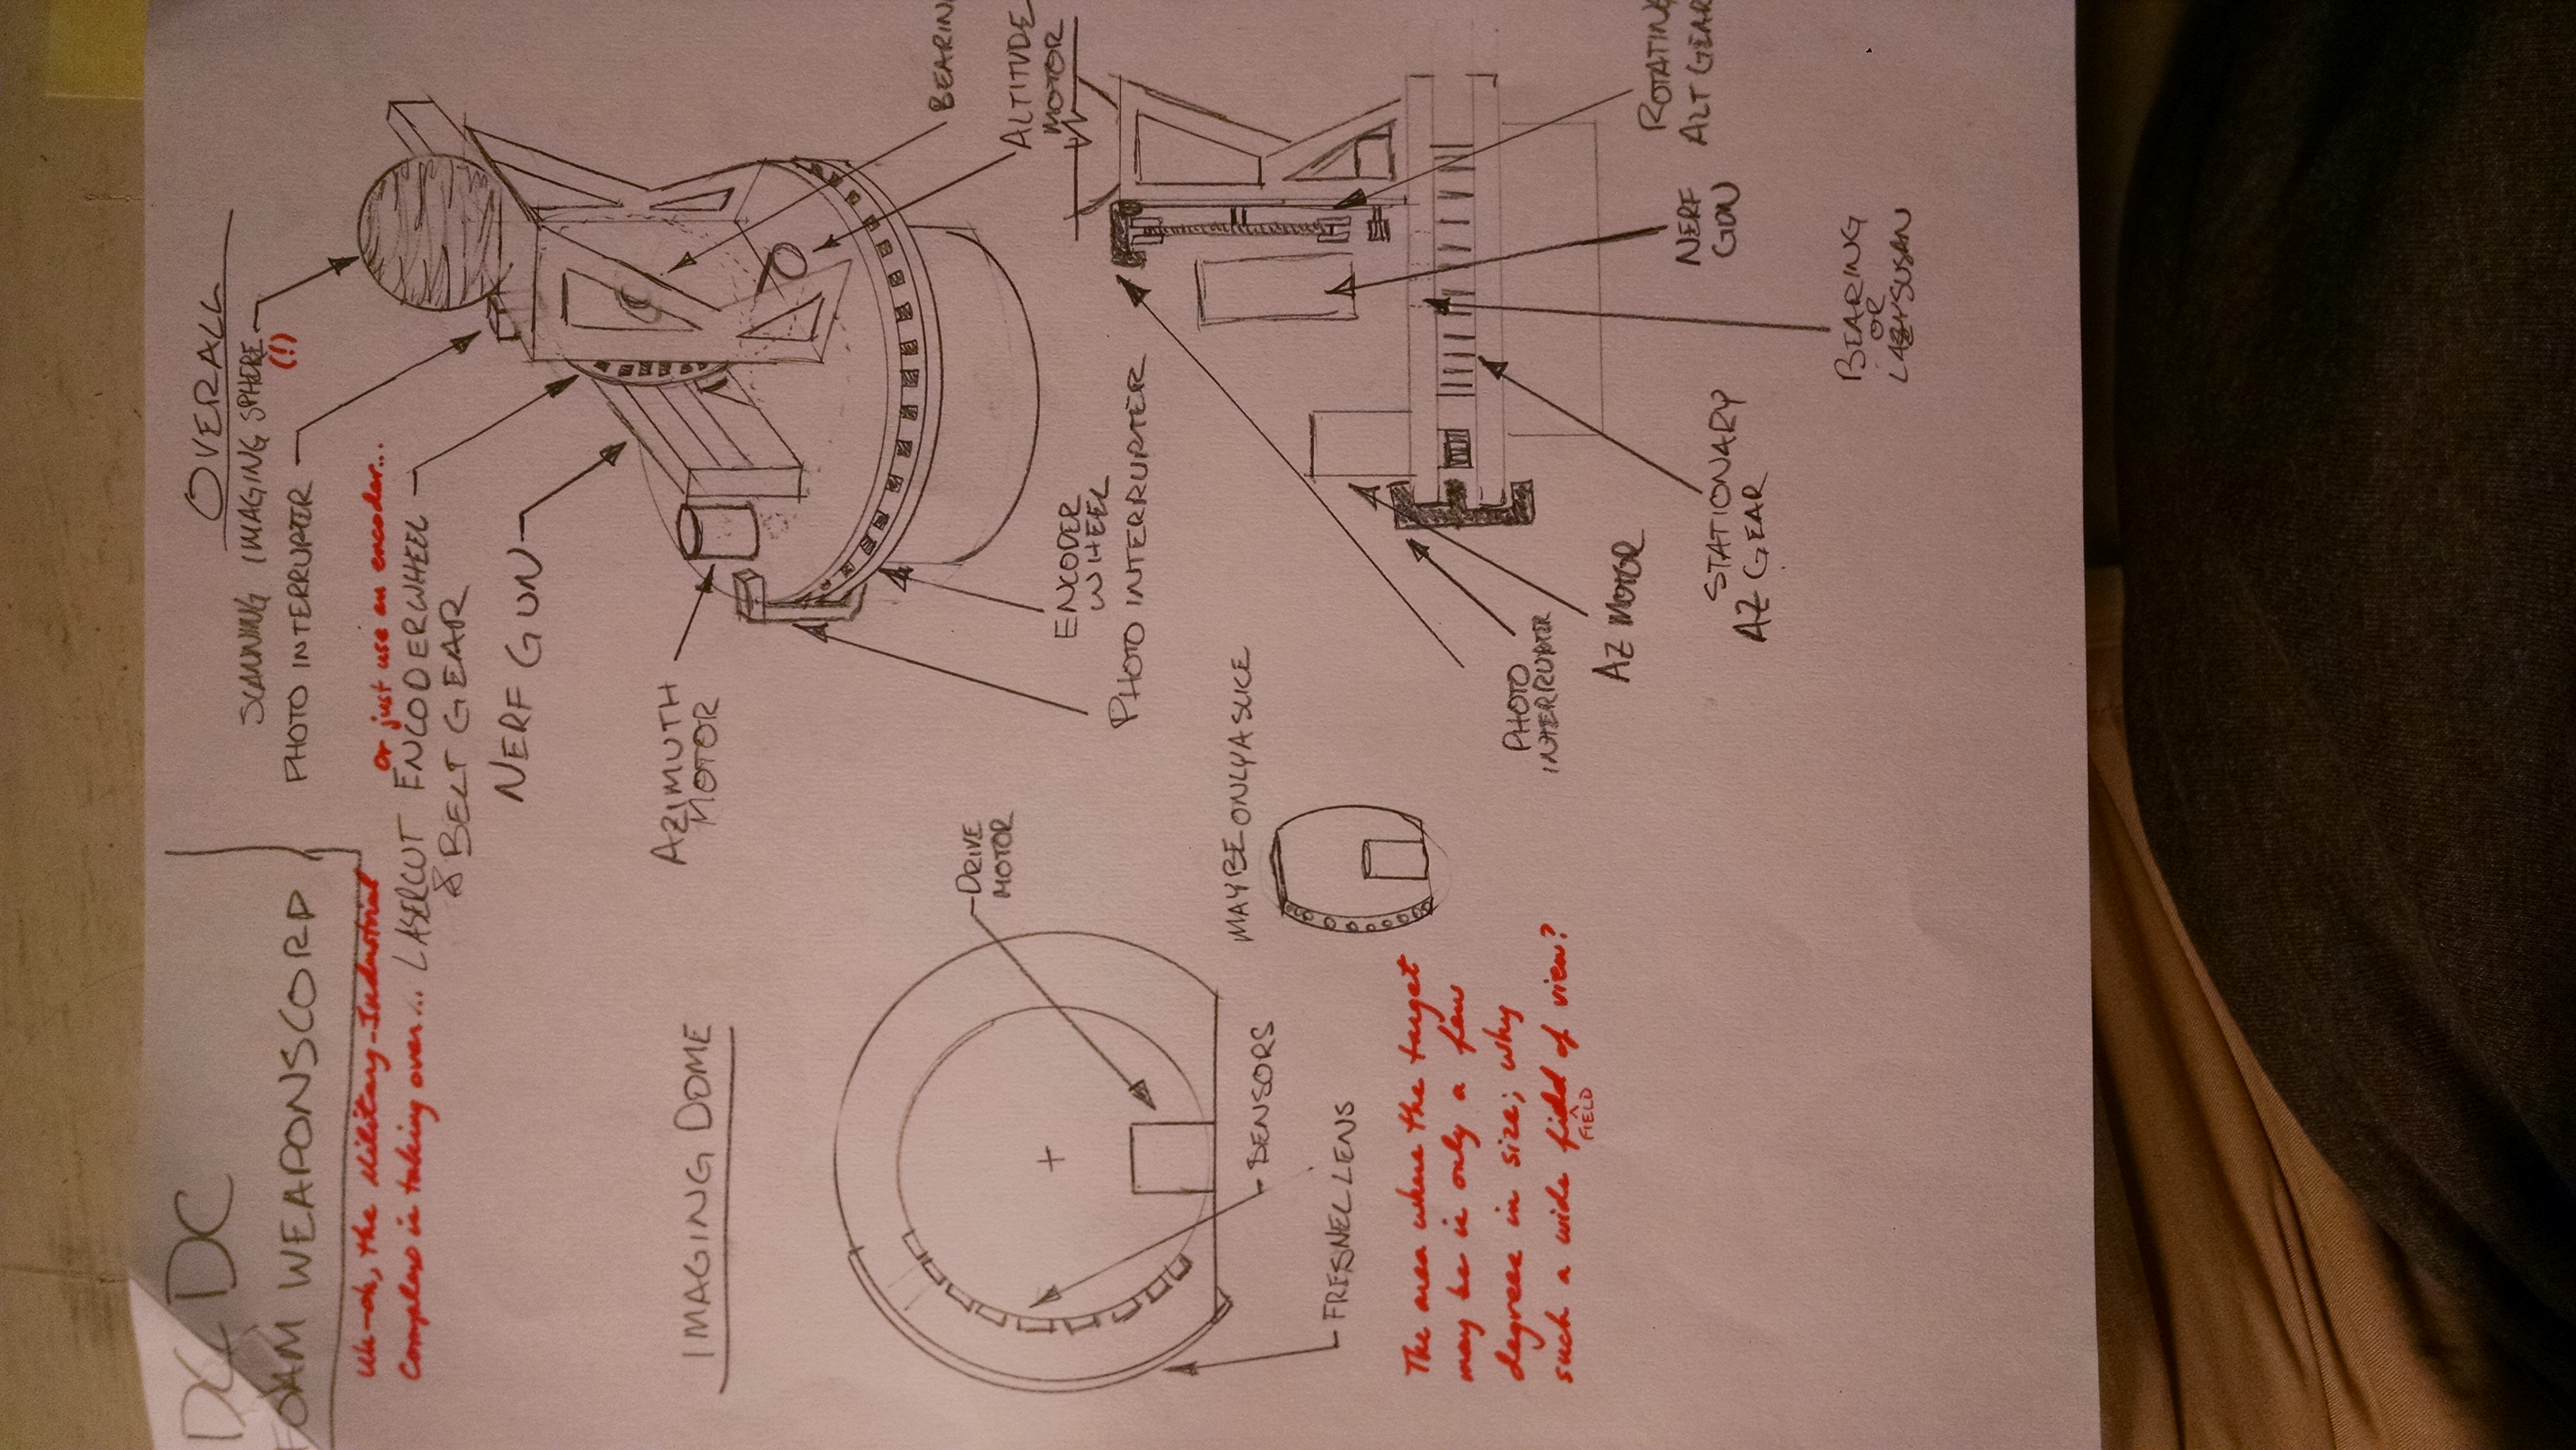 DC DC
FOAM WEAPONSCORP
Uh-oh, the Military-Industrial
Complex is taking over...
OVERALL
SCANNING IMAGING SPHERE
(!)
PHOTO INTERRUPTER
Or just use an encoder...
LASERCUT ENCODERWHEEL
& BELT GEAR
NERF GUN
AZIMUTH
MOTOR
BEARIN
ALTITUDE
MOTOR
ENCODER
WHEEL
PHOTO INTERRUPTER
IMAGING DOME
DRIVE
MOTOR
SENSORS
FRESNEL LENS
MAYBE ONLY A SLICE
The area where the target
may be is only a few
degrees in size; why
such a wide field of view?
^
FIELD
PHOTO
INTERRUPTER
AZ MOTOR
STATIONARY
AZ GEAR
BEARING
OR
LAZY SUSAN
NERF
GUN
ROTATING
ALT GEAR